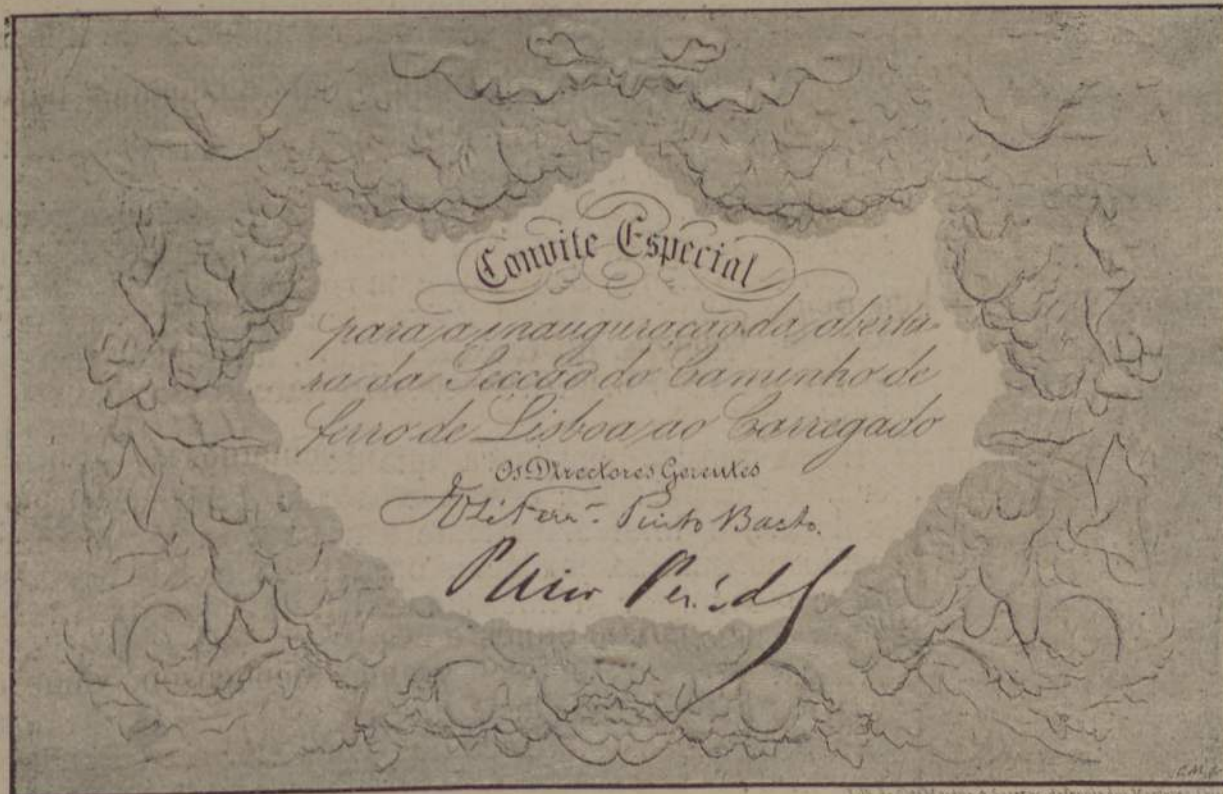 Convite Especial
para a inauguração da abertu-
ra da Secção do Caminho de
ferro de Lisboa ao Carregado
Os Directores Gerentes
Pinto Basto.